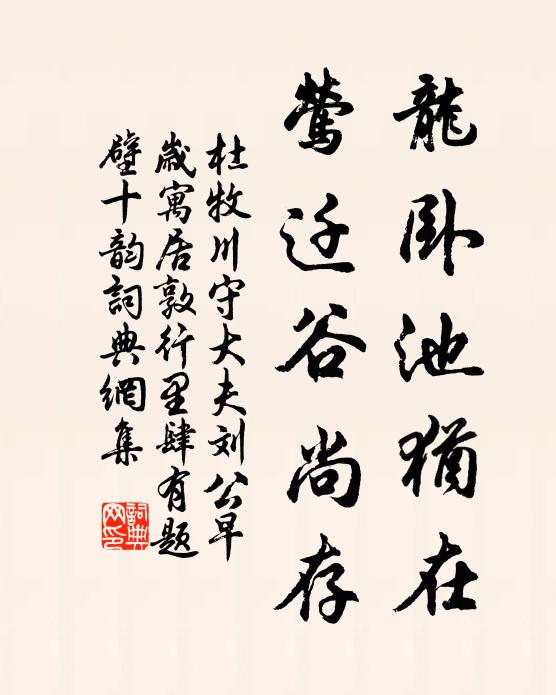 龍卧池猶在
鶯迁谷尚存
杜牧川守大夫刘公早
歲寓居敦行里肆有题
壁十韵詞典網集
詞典网印